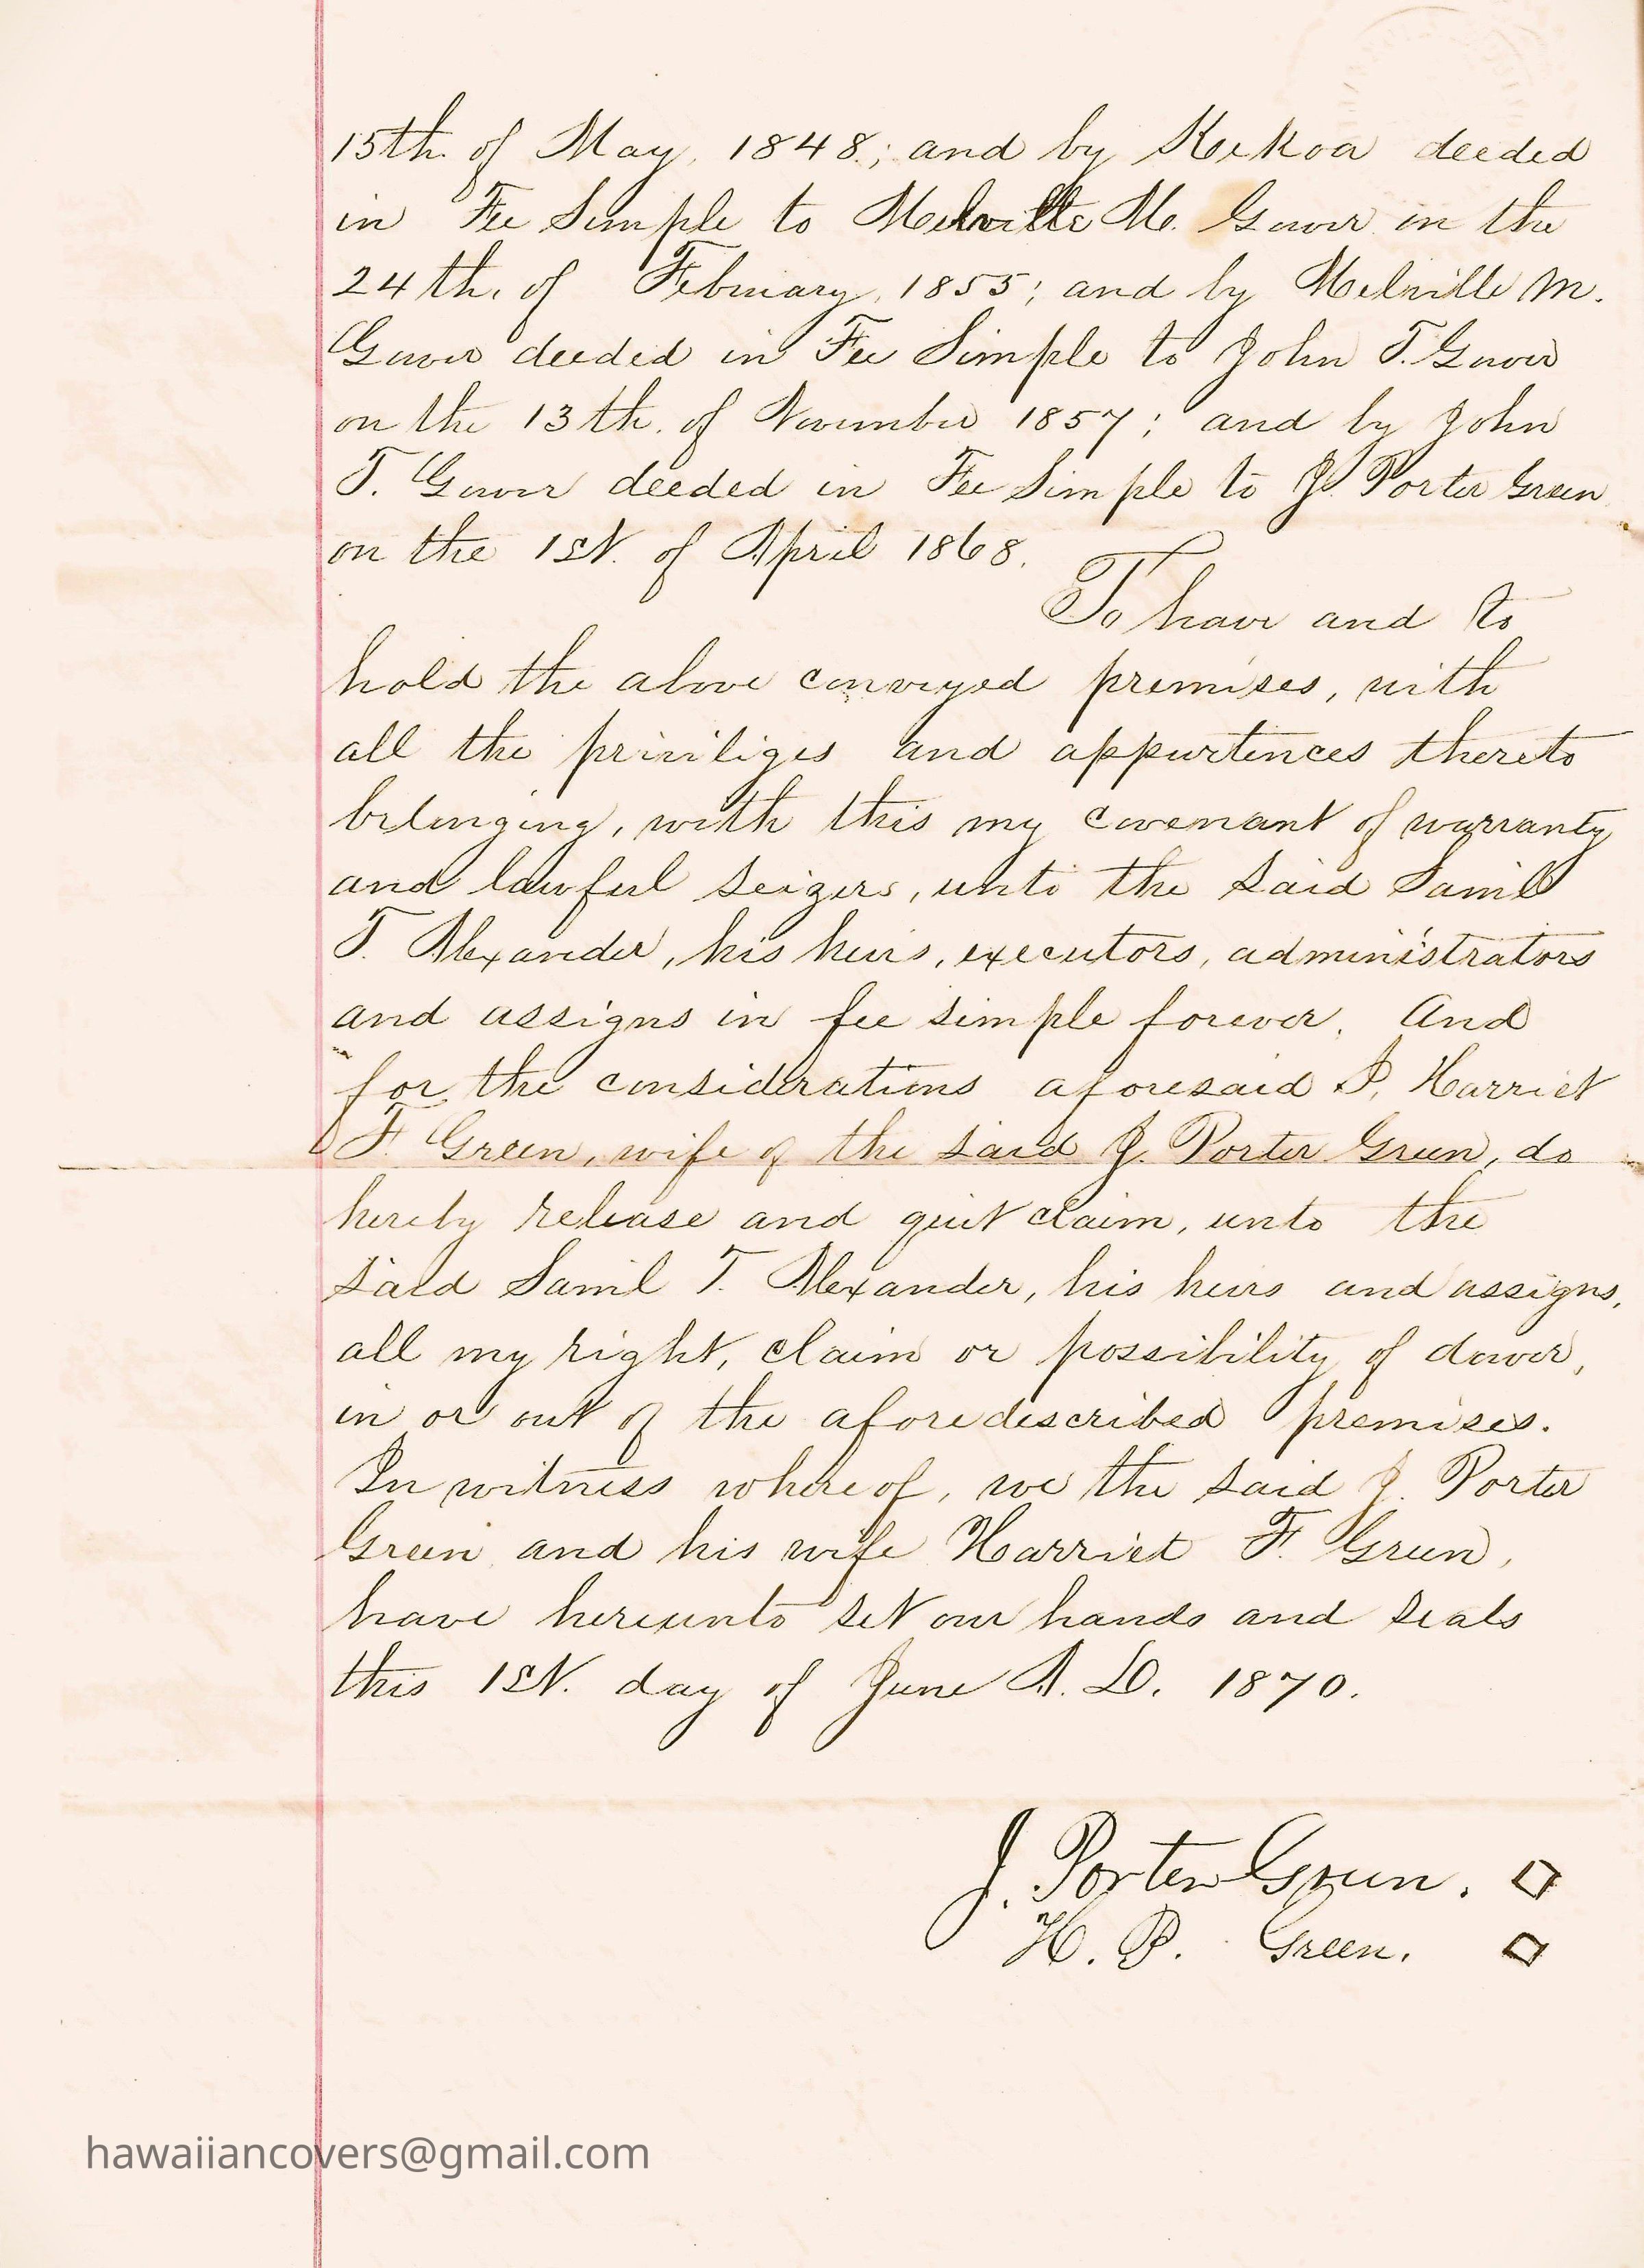 15th. of May, 1848.; and by Kekoa deeded
in Fee Simple to Melville M. Gower in the
24th. of February, 1855; and by Melville M.
Gower deeded in Fee Simple to John T. Gower
on the 13th. of November 1857; and by John
T. Gower deeded in Fee Simple to J. Porter Green
on the 1st. of April 1868.
To have and to
hold the above conveyed premises, with
all the priviliges and appurtences thereto
belonging, with this my covenant of warranty
and lawful seizers, unto the said Saml
T. Alexander, his heirs, executors, administrators
and assigns in fee simple forever. And
for the considerations aforesaid I, Harriet
F. Green, wife of the said J. Porter Green, do
hereby release and quit claim, unto the
said Saml T. Alexander, his heirs and assigns,
all my right, claim or possibility of dower,
in or out of the aforedescribed premises.
In witness whereof, we the said J. Porter
Green and his wife Harriet F. Green,
have hereunto set our hands and seals
this 1st. day of June A. D. 1870.
J. Porter Green.
H. P. Green.
hawaiiancovers@gmail.com